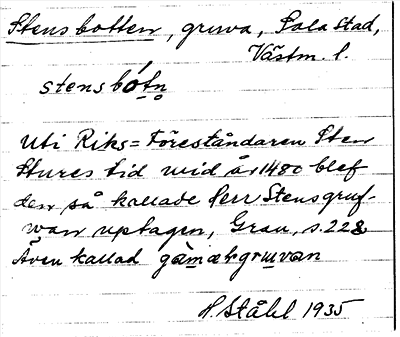 Stensbotten, gruva, Sala stad,
Västm. l.
stensbótn
Uti Riks=Föreståndaren Sten
Stures tid wid år 1480 blef
den så kallade Herr Stensgruf-
wan uptagen, Grau, s. 228
Även kallad gàmalgruvan
H. Ståhl 1935